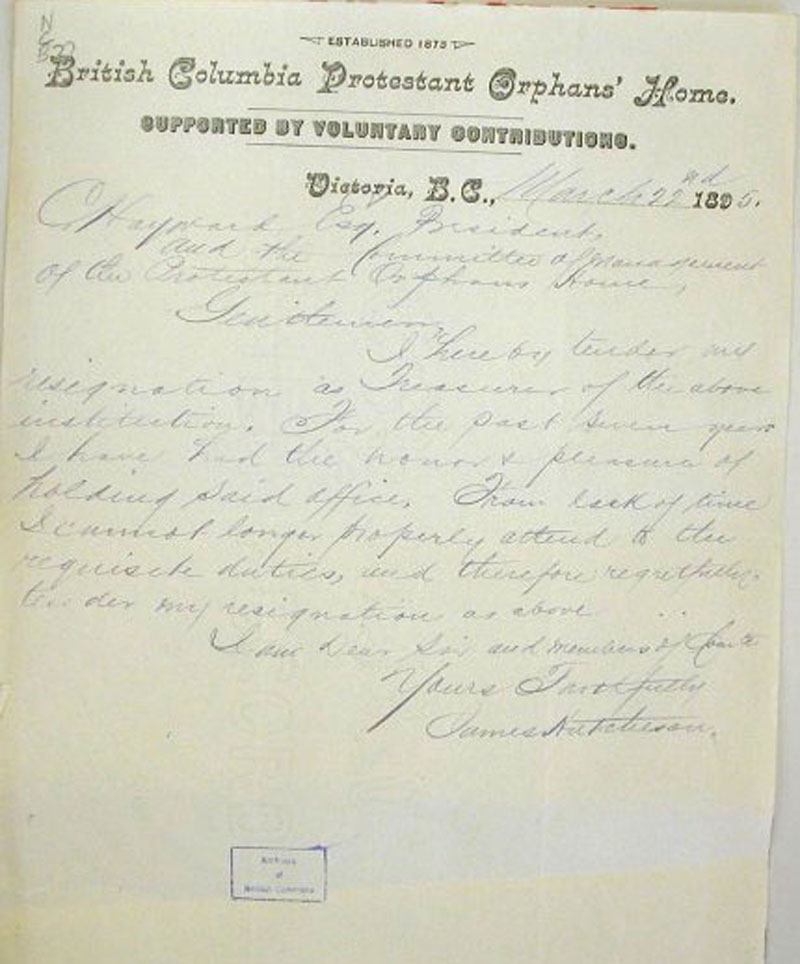 N
ESTABLISHED 1873
British Columbia Protestant Orphans' Home.
SUPPORTED BY VOLUNTARY CONTRIBUTIONS.
Victoria, B.C., March 22nd 1895.
C Hayward Esq. President,
and the Committee of Management
of the Protestant Orphans Home,
Gentlemen
I hereby tender my
resignation as Treasurer of the above
institution. For the past seven years
I have had the honor & pleasure of
holding said office. From lack of time
I cannot longer properly attend to the
requisite duties, and therefore regretfully
tender my resignation as above
I am Dear Sir and members of
Yours Faithfully
James Hutcheson.
Archives
of
British Columbia